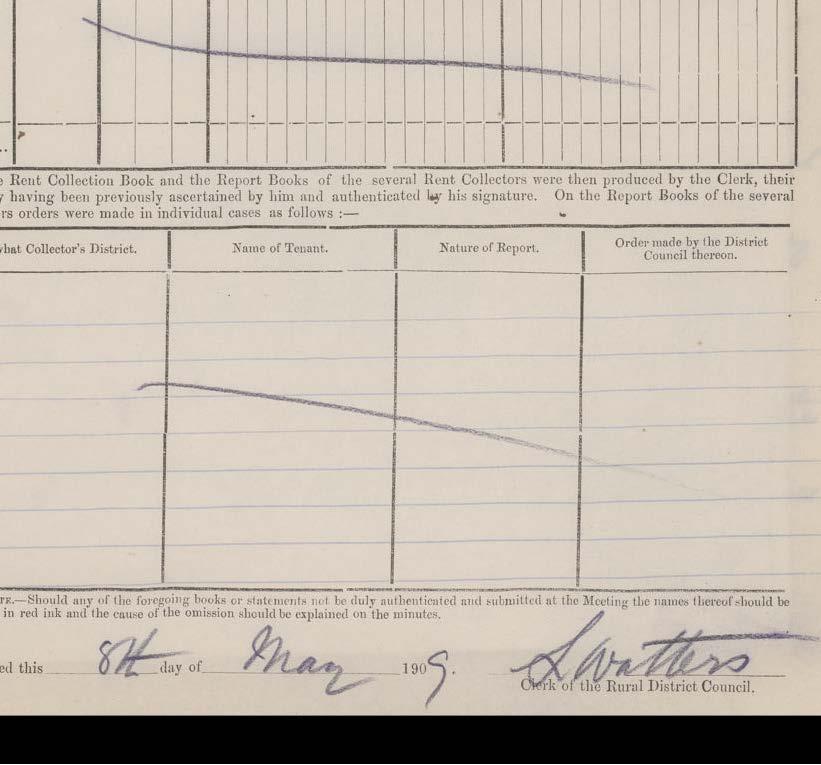 Rent Collection Book and the Report Books of the several Rent Collectors were then produced by the Clerk, their
having been previously ascertained by him and authenticated by his signature. On the Report Books of the several
rs orders were made in individual cases as follows :—
what Collector's District. Name of Tenant. Nature of Report. Order made by the District Council thereon.
TE.—Should any of the foregoing books or statements not be duly authenticated and submitted at the Meeting the names thereof should be
in red ink and the cause of the omission should be explained on the minutes.
ed this 8th day of May 1909. S Watters
Clerk of the Rural District Council.